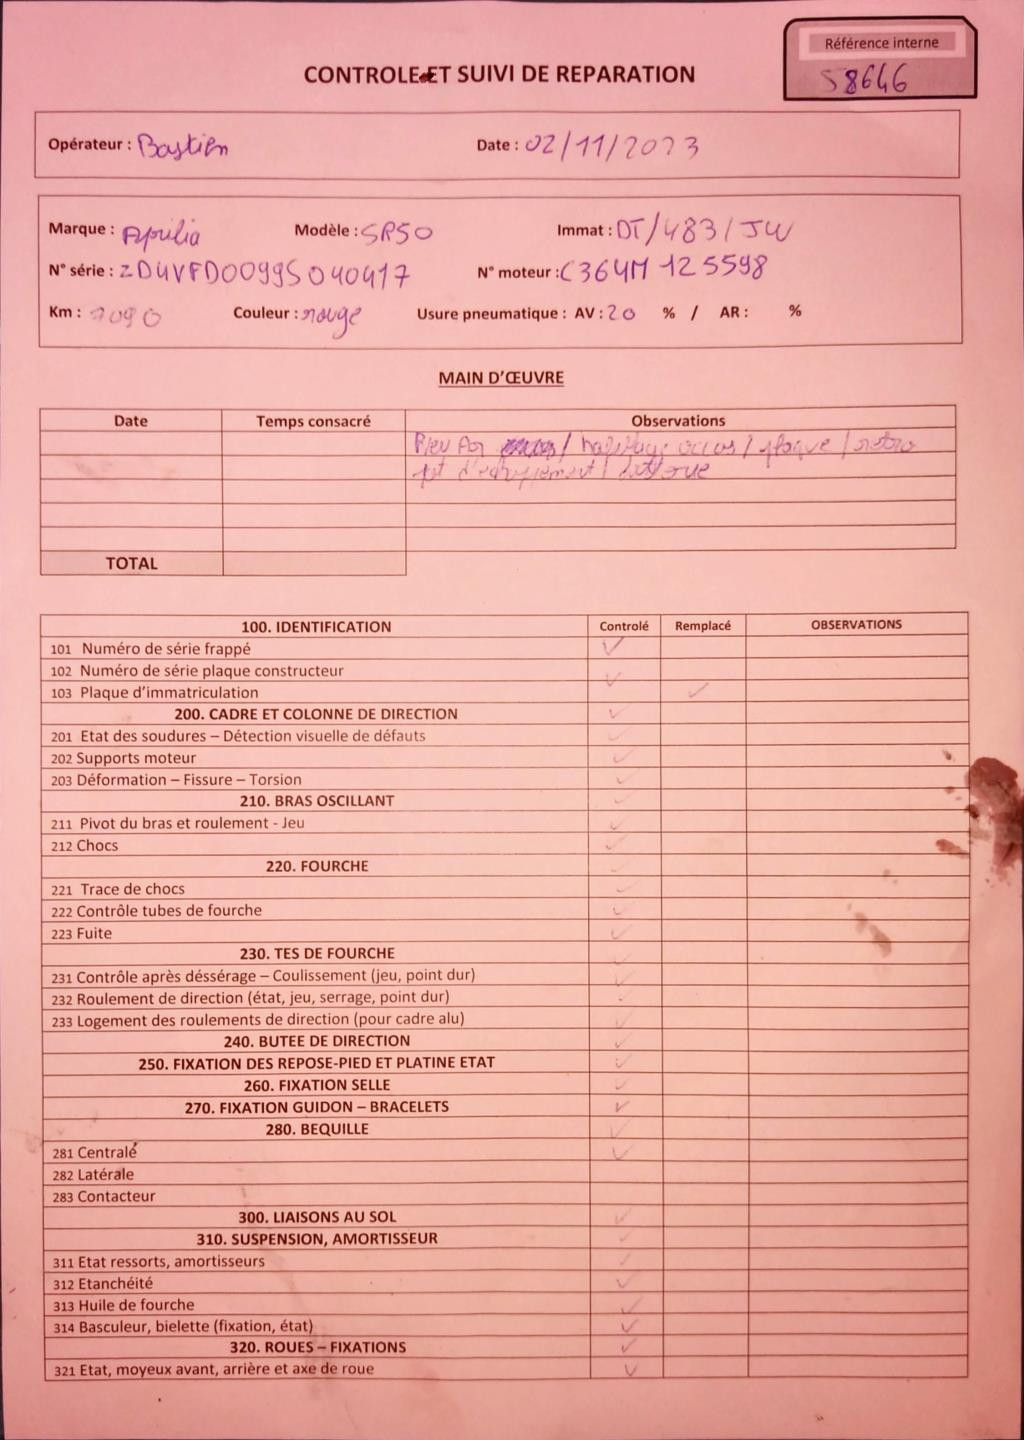 Référence interne
S8646
CONTROLE ET SUIVI DE REPARATION
Opérateur : Bastien Date : 02/11/2023
Marque : Aprilia Modèle : SR50 Immat : DT/483/JW
N° série : ZD4VFD0099S040417 N° moteur : C364M 125598
Km : 7090 Couleur : rouge Usure pneumatique : AV : 20 % / AR : %
MAIN D'ŒUVRE
Date Temps consacré Observations
Pneu AR / habillage occas / plaque / retro
pot d'echappement / batterie
TOTAL
100. IDENTIFICATION Controlé Remplacé OBSERVATIONS
101 Numéro de série frappé
102 Numéro de série plaque constructeur
103 Plaque d'immatriculation
200. CADRE ET COLONNE DE DIRECTION
201 Etat des soudures – Détection visuelle de défauts
202 Supports moteur
203 Déformation – Fissure – Torsion
210. BRAS OSCILLANT
211 Pivot du bras et roulement - Jeu
212 Chocs
220. FOURCHE
221 Trace de chocs
222 Contrôle tubes de fourche
223 Fuite
230. TES DE FOURCHE
231 Contrôle après déssérage – Coulissement (jeu, point dur)
232 Roulement de direction (état, jeu, serrage, point dur)
233 Logement des roulements de direction (pour cadre alu)
240. BUTEE DE DIRECTION
250. FIXATION DES REPOSE-PIED ET PLATINE ETAT
260. FIXATION SELLE
270. FIXATION GUIDON – BRACELETS
280. BEQUILLE
281 Centrale
282 Latérale
283 Contacteur
300. LIAISONS AU SOL
310. SUSPENSION, AMORTISSEUR
311 Etat ressorts, amortisseurs
312 Etanchéité
313 Huile de fourche
314 Basculeur, bielette (fixation, état)
320. ROUES – FIXATIONS
321 Etat, moyeux avant, arrière et axe de roue